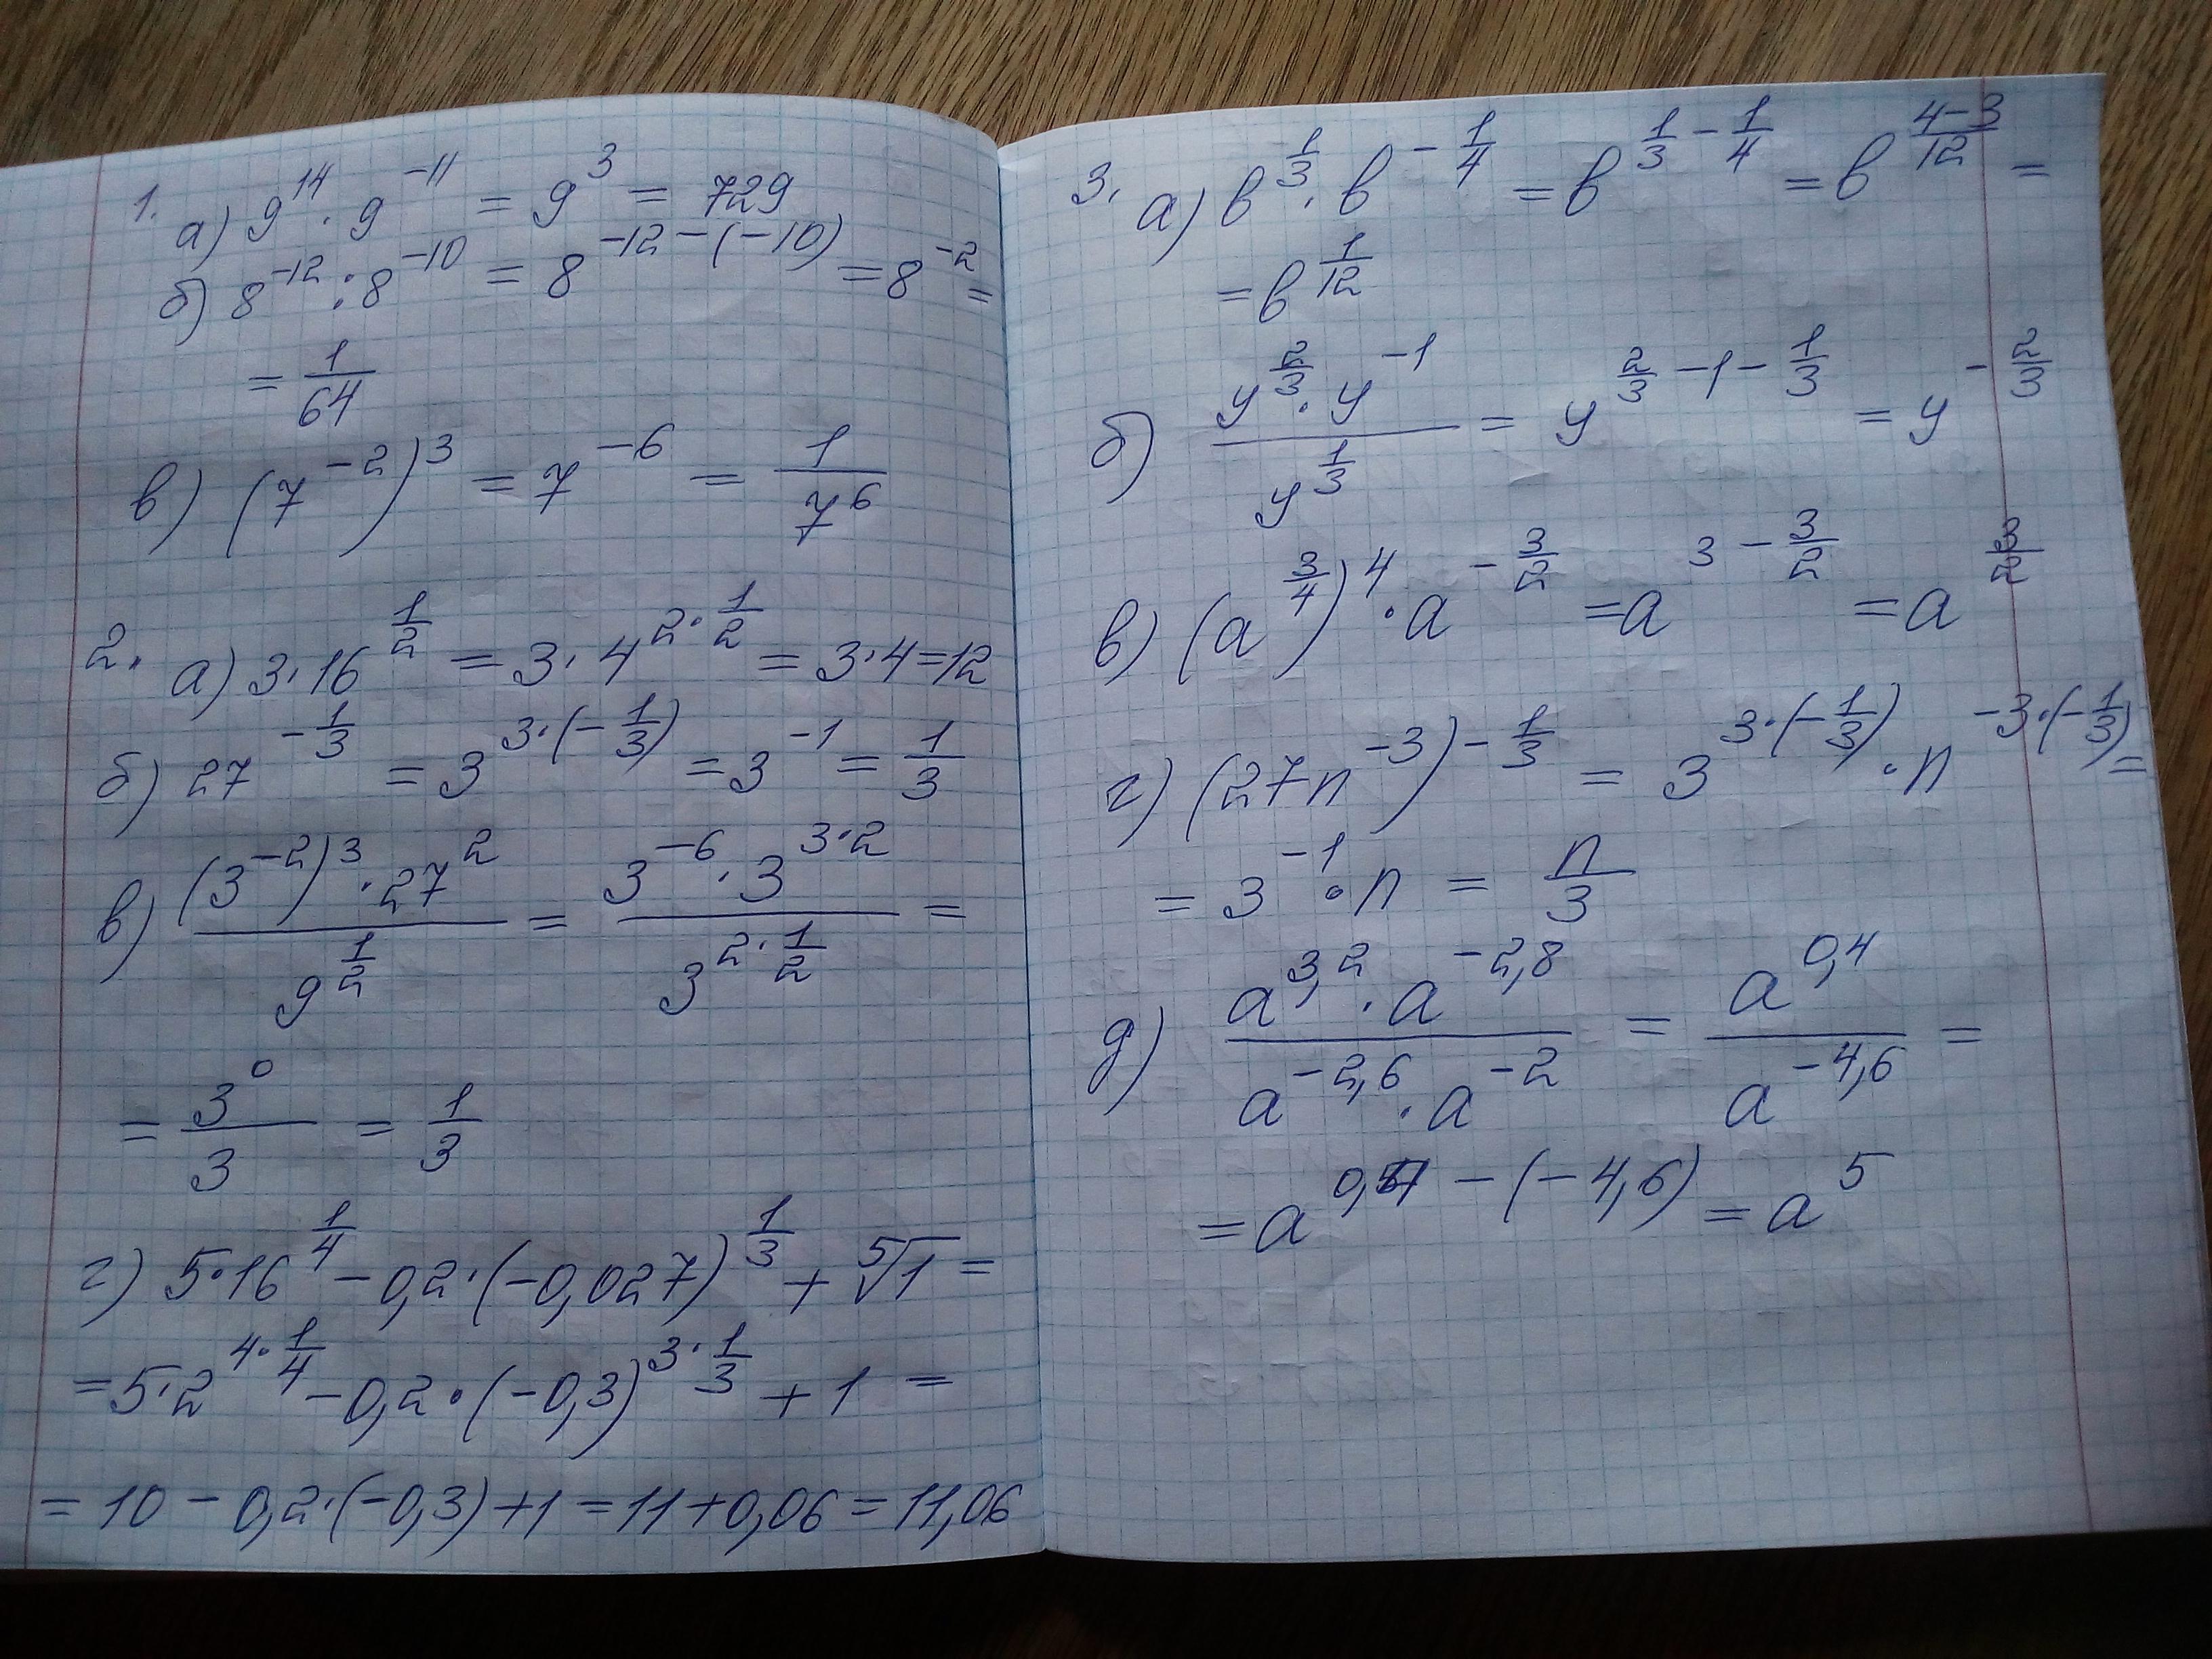 1. а) 9^14 · 9^-11 = 9^3 = 729
б) 8^-12 : 8^-10 = 8^-12-(-10) = 8^-2 =
= 1/64
в) (7^-2)^3 = 7^-6 = 1/7^6
2. а) 3·16^1/2 = 3·4^2·1/2 = 3·4=12
б) 27^-1/3 = 3^3·(-1/3) = 3^-1 = 1/3
в) (3^-2)^3 · 27^2 / 9^1/2 = 3^-6 · 3^3·2 / 3^2·1/2 =
= 3^0/3 = 1/3
г) 5·16^1/4 - 0,2·(-0,027)^1/3 + ⁵√1 =
= 5·2^4·1/4 - 0,2·(-0,3)^3·1/3 + 1 =
= 10 - 0,2·(-0,3)+1 = 11+0,06 = 11,06
3. а) в^1/3 · в^-1/4 = в^1/3-1/4 = в^4-3/12 =
= в^1/12
б) y^2/3 · y^-1 / y^1/3 = y^2/3-1-1/3 = y^-2/3
в) (a^3/4)^4 · a^-3/2 = a^3-3/2 = a^3/2
г) (27n^-3)^-1/3 = 3^3·(-1/3) · n^-3·(-1/3) =
= 3^-1 · n = n/3
д) a^3,2 · a^-2,8 / a^-2,6 · a^-2 = a^0,4 / a^-4,6 =
= a^0,4-(-4,6) = a^5